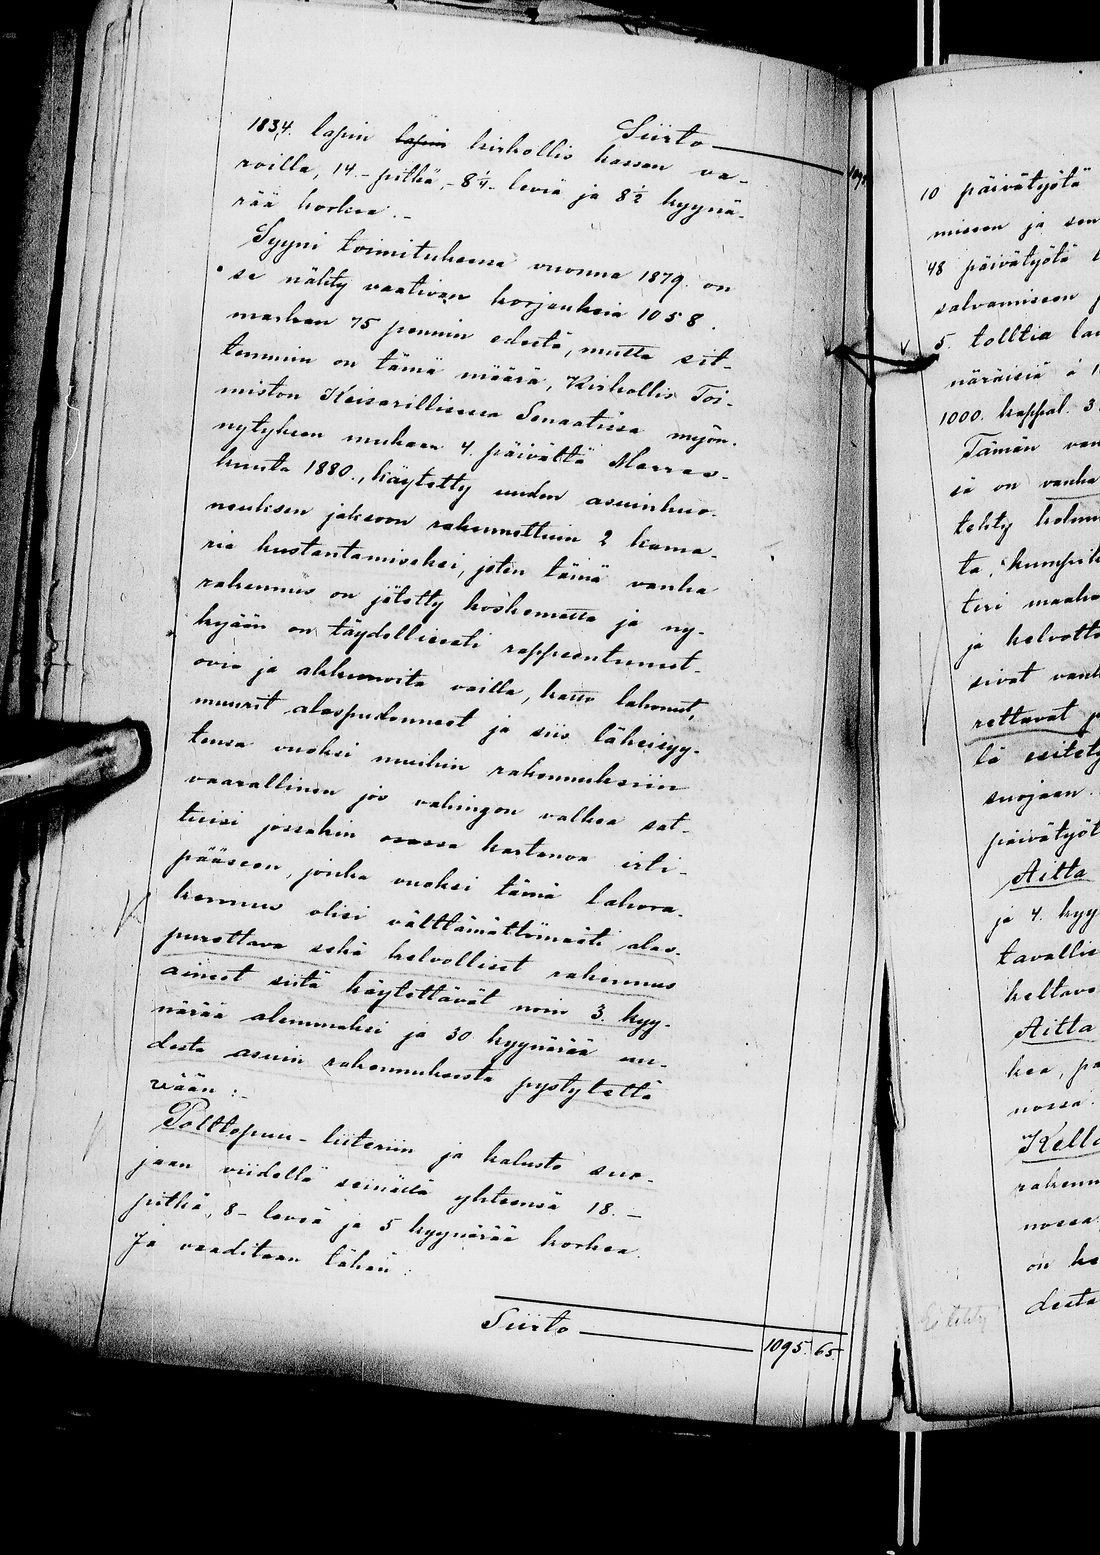 Siirto
1834. lapin lapin kirkollis kassan va-
roilla, 14.- pitkä,- 8¼- leviä ja 8½ kyynä-
rää korkea.-
Syyni toimituksessa vuonna 1879. on
se nähty vaativan korjauksia 1058.
markan 75 pennin edestä, mutta sit-
temmin on tämä määrä, Kirkollis Toi-
miston Keisarillisessa Senaatissa myön-
nytyksen mukaan 4. päivältä Marras-
kuuta 1880., käytetty uuden asuinhuo-
neuksen jaksoon rakennettuin 2 kama-
rin kustantamiseksi, joten tämä vanha
rakennus on jätetty koskematta ja ny-
kyään on täydellisesti rappeentunut
ovia ja akkunoita vailla, katto lahonut,
muurit alaspudonneet ja siis läheisyy-
tensä vuoksi muihin rakennuksiin
vaarallinen jos vahingon valkea sat-
tuisi jossakin osassa kartanoa irti-
pääseen, jonka vuoksi tämä lahora-
kennus olisi välttämättömästi alas-
purettava sekä kelvolliset rakennus
aineet siitä käytettävät noin 3. kyy-
närää alemmaksi ja 30 kyynärää uu-
desta asuin rakennuksesta pystytettä
vään:-
Polttopuu-liiteriin ja kalusto suo-
jaan viidellä seinällä yhteensä 18.-
pitkä, 8- leviä ja 5 kyynärää korkea.
Ja vaaditaan tähän:
Siirto 1095. 65.
10 päivätyötä
miseen ja sen
48 päivätyötä
salvamiseen
5. tolttia
näräisiä á
1000. kappal. 3
Tämän
sä on vanha
tehty
ta,
teri
ja kelvotto
sivat
rettavat
lä esitety
suojaan.
päivätyöt
Aitta
ja 4. kyy
tavallis
keltava
Aitta
kea, pa
nossa.
Kello
rakenn
nossa
on
desta
Ei tehty